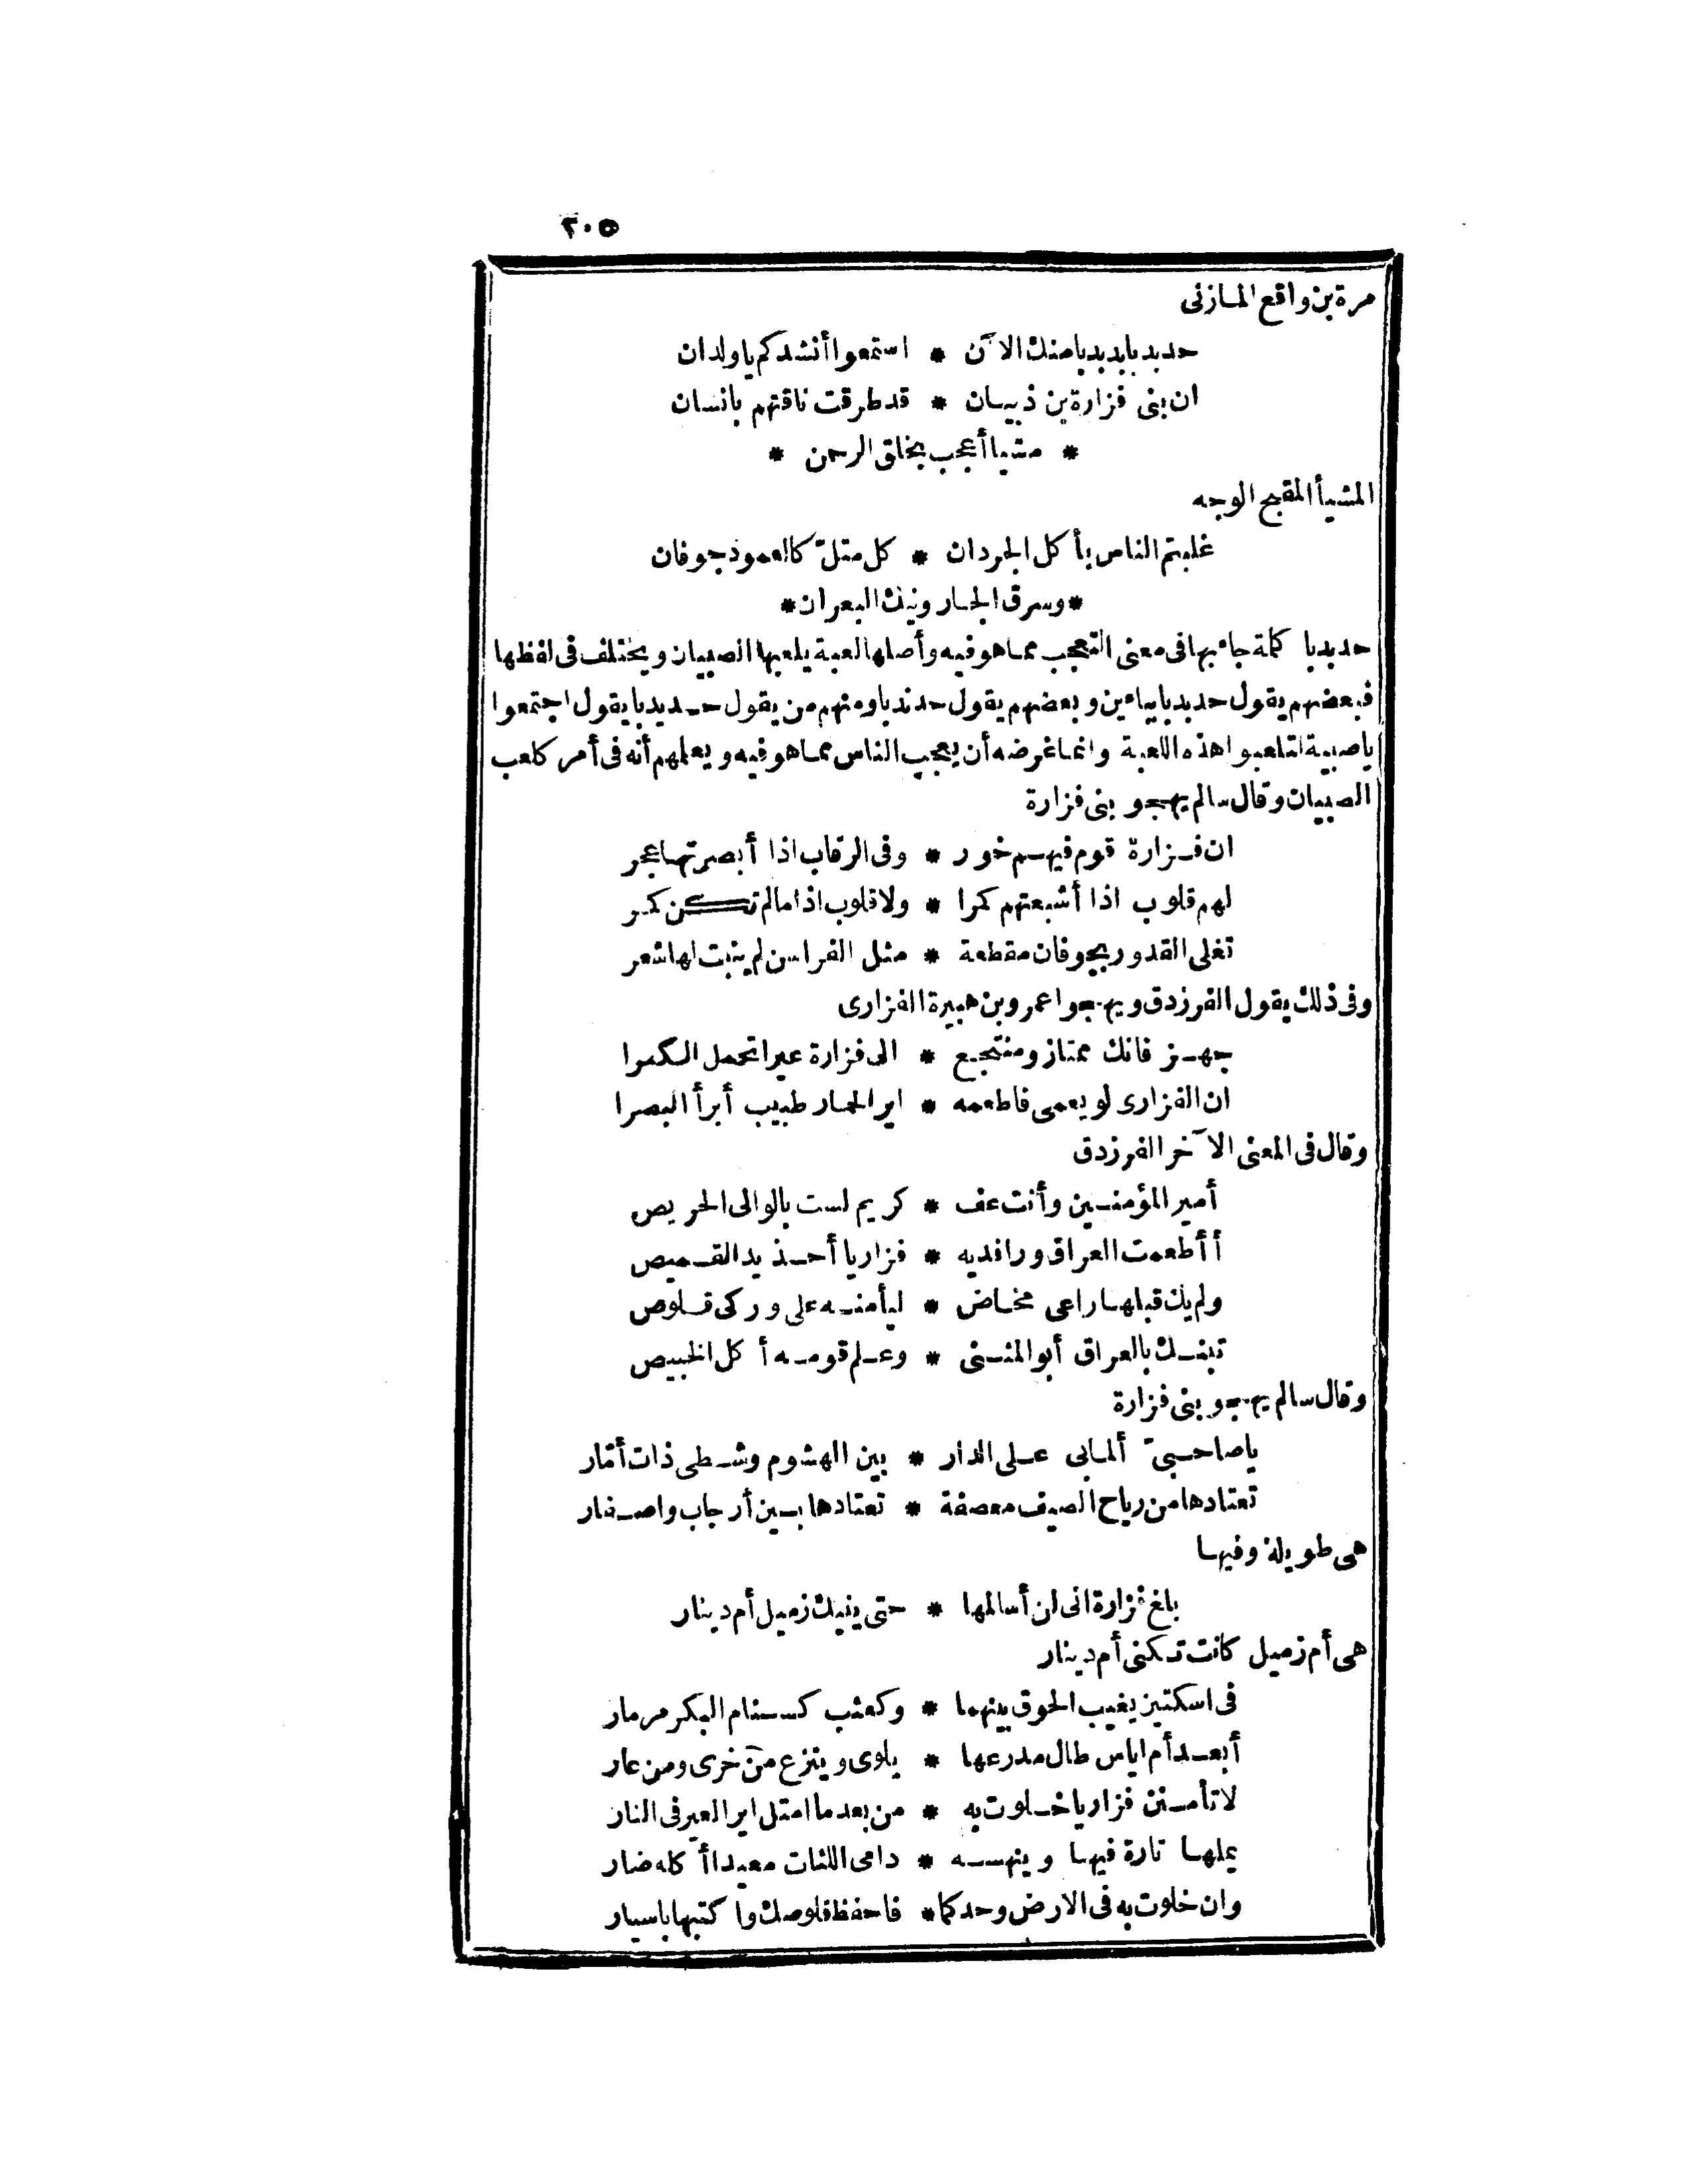 ٢٠٥
مرة بن واقع المازنى
حدبدبا بدبدبا منك الآن * استمعوا أنشدكم يا ولدان
ان بنى فزارة بن ذبيان * قد طرقت ناقتهم بانسان
* مشيا أعجب بخلق الرحمن *
المشيأ المقبح الوجه
غلبتم الناس بأكل الجردان * كل متلّ كالعمود جوفان
* وسرق الجار ونيك البعران *
حدبدبا كلمة جاء بها فى معنى التعجب مما هو فيه وأصلها لعبة يلعبها الصبيان ويختلف فى لفظها
فبعضهم يقول حدبدبا بباءين وبعضهم يقول حدندبا ومنهم من يقول حديدبا يقول اجتمعوا
يا صبية لتلعبوا هذه اللعبة وانما غرضه أن يعجب الناس مما هو فيه ويعلمهم أنه فى أمر كلعب
الصبيان وقال سالم يهجو بنى فزارة
ان فزارة قوم فيهم خور * وفى الرقاب اذا أبصرتها عجر
لهم قلوب اذا أشبعتهم كمرا * ولا قلوب اذا ما لم تكن كمر
تغلى القدور بجوفان مقطعة * مثل الفراسن لم ينبت لها شعر
وفى ذلك يقول الفرزدق ويهجوا عمرو بن هبيرة الفزارى
جهز فانك ممتاز ومنتجع * الى فزارة عيرا تحمل الكمرا
ان الفزارى لو يعمى فاطعمه * اير الحمار طبيب أبرأ البصرا
وقال فى المعنى الآخر الفرزدق
أمير المؤمنين وأنت عف * كريم لست بالوالى الحريص
أأطعمت العراق ورافديه * فزاريا أحذ يد القميص
ولم يك قبلها راعى مخاض * ليأمنه على وركى قلوص
تبنك بالعراق أبو المثنى * وعلم قومه أكل الخبيص
وقال سالم يهجو بنى فزارة
يا صاحبىّ ألما بى على الدار * بين الهشوم وشطى ذات أمار
تعتادها من رياح الصيف معصفة * تعتادها بين أرجاب واصفار
هى طويلة وفيها
بلغ فزارة انى لن أسالمها * حتى ينيك زميل أم دينار
هى أم زميل كانت تكنى أم دينار
فى اسكتيز يغيب الحوق بينهما * وكعثب كسنام البكر مرمار
أبعد أم اياس طال مدرعها * يلوى وينزع من خزى ومن عار
لا تأمنن فزاريا خلوت به * من بعد ما امتل اير العير فى النار
يملها تارة فيها وينهسه * دامى اللثات معيدا أكله ضار
وان خلوت به فى الارض وحدكما * فاحفظ قلوصك واكتبها باسيار